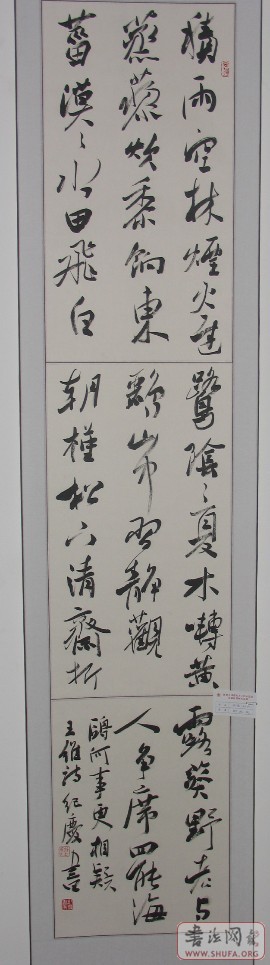 積雨空林煙火遲
蒸藜炊黍餉東
菑漠々水田飛白
鷺陰々夏木囀黃
鸝山中習靜觀
朝槿松下清齋折
露葵野老与
人争席罷海
鷗何事更相疑
王維詩 紀慶書
书法网
WWW.SHUFA.ORG